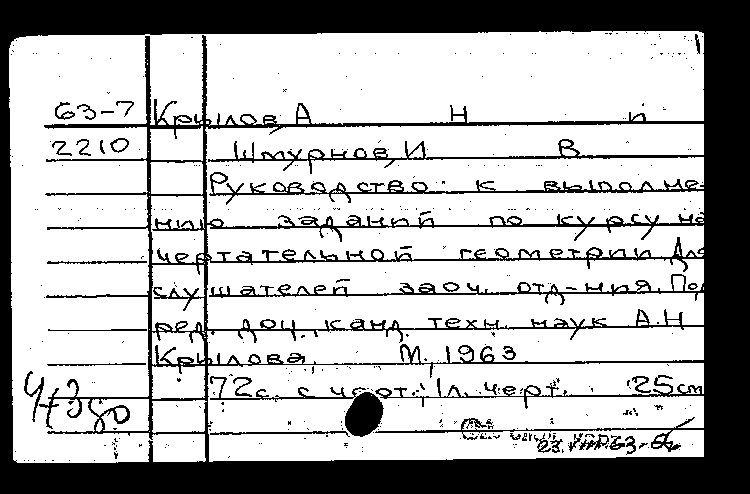 63-7 Крылов, А Н и
2210 Шмурнов, И В
Руководство к выполне-
нию заданий по курсу на
чертательной геометрии Для
слушателей заоч. отд-ния. Под
ред. доц., канд. техн. наук А.Н
Крылова. М., 1963
72с. с черт.; 1л. черт. 25см
23.VIII.63-